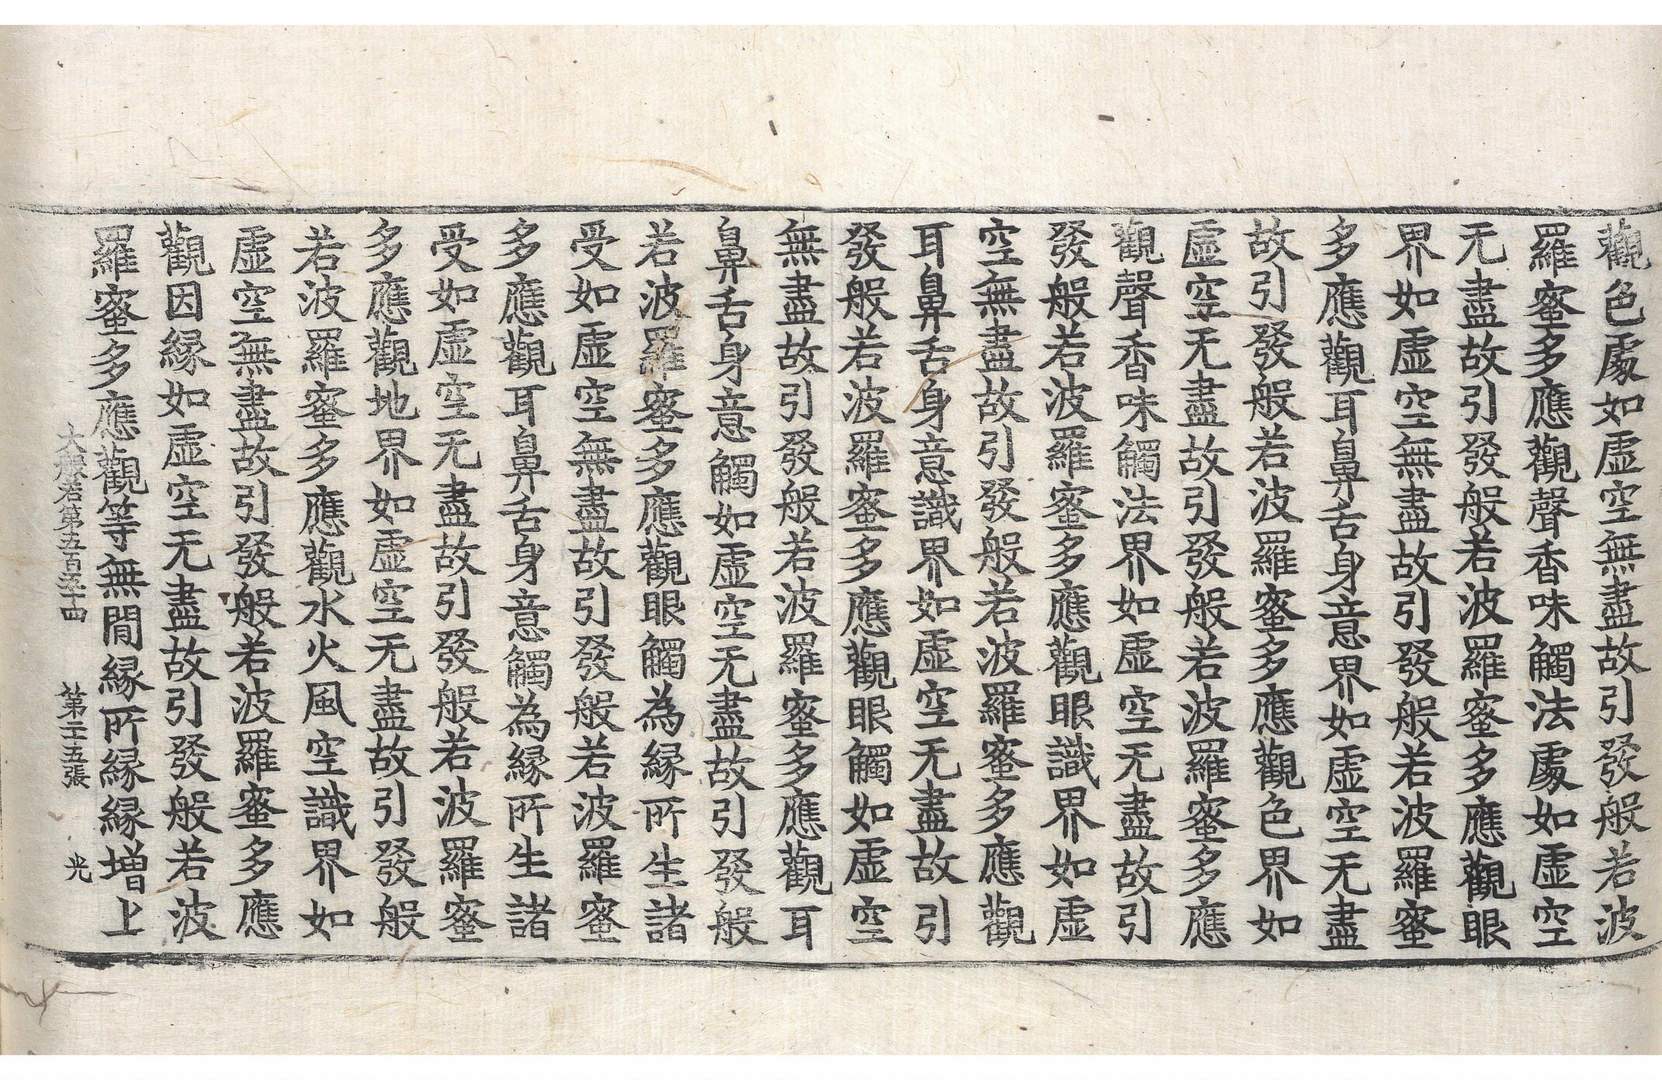 觀色處如虛空無盡故引發般若波
羅蜜多應觀聲香味觸法處如虛空
无盡故引發般若波羅蜜多應觀眼
界如虛空無盡故引發般若波羅蜜
多應觀耳鼻舌身意界如虛空无盡
故引發般若波羅蜜多應觀色界如
虛空无盡故引發般若波羅蜜多應
觀聲香味觸法界如虛空无盡故引
發般若波羅蜜多應觀眼識界如虛
空無盡故引發般若波羅蜜多應觀
耳鼻舌身意識界如虛空无盡故引
發般若波羅蜜多應觀眼觸如虛空
無盡故引發般若波羅蜜多應觀耳
鼻舌身意觸如虛空无盡故引發般
若波羅蜜多應觀眼觸為縁所生諸
受如虛空無盡故引發般若波羅蜜
多應觀耳鼻舌身意觸為縁所生諸
受如虛空无盡故引發般若波羅蜜
多應觀地界如虛空无盡故引發般
若波羅蜜多應觀水火風空識界如
虛空無盡故引發般若波羅蜜多應
觀因縁如虛空无盡故引發般若波
羅蜜多應觀等無間縁所縁縁增上
大般若第五百五十四 第二十五張 光